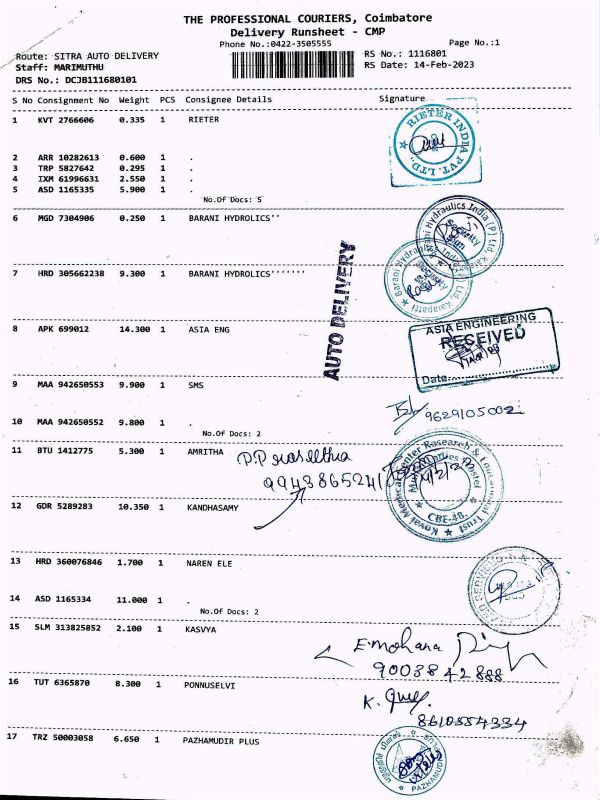 THE PROFESSIONAL COURIERS, Coimbatore
Delivery Runsheet - CMP
Phone No.:0422-3505555
Page No.:1
Route: SITRA AUTO DELIVERY
RS No.: 1116801
Staff: MARIMUTHU
RS Date: 14-Feb-2023
DRS No.: DCJB111680101
S No Consignment No Weight PCS Consignee Details Signature
1 KVT 2766606 0.335 1 RIETER
RIETER INDIA PVT. LTD.,
2 ARR 10282613 0.600 1 .
3 TRP 5827642 0.295 1 .
4 IXM 61996631 2.550 1 .
5 ASD 1165335 5.900 1 .
No.Of Docs: 5
6 MGD 7304906 0.250 1 BARANI HYDROLICS''
Barani Hydraulics India (P) Ltd.
Security
7 HRD 305662238 9.300 1 BARANI HYDROLICS'''''''
Barani Hydraulics India (P) Ltd, Kalapatti
Security
AUTO DELIVERY
8 APK 699012 14.300 1 ASIA ENG
ASIA ENGINEERING
RECEIVED
Date
9 MAA 942650553 9.900 1 SMS
9629105002
10 MAA 942650552 9.800 1 .
No.Of Docs: 2
11 BTU 1412775 5.300 1 AMRITHA
9948865241
Kovai Medical Center Research & Educational Trust
CBE-48.
12 GDR 5289283 10.350 1 KANDHASAMY
13 HRD 360076846 1.700 1 NAREN ELE
14 ASD 1165334 11.000 1 .
No.Of Docs: 2
15 SLM 313825852 2.100 1 KASVYA
E.Mohana
9003842888
16 TUT 6365870 8.300 1 PONNUSELVI
K.
8610554334
17 TRZ 50003058 6.650 1 PAZHAMUDIR PLUS